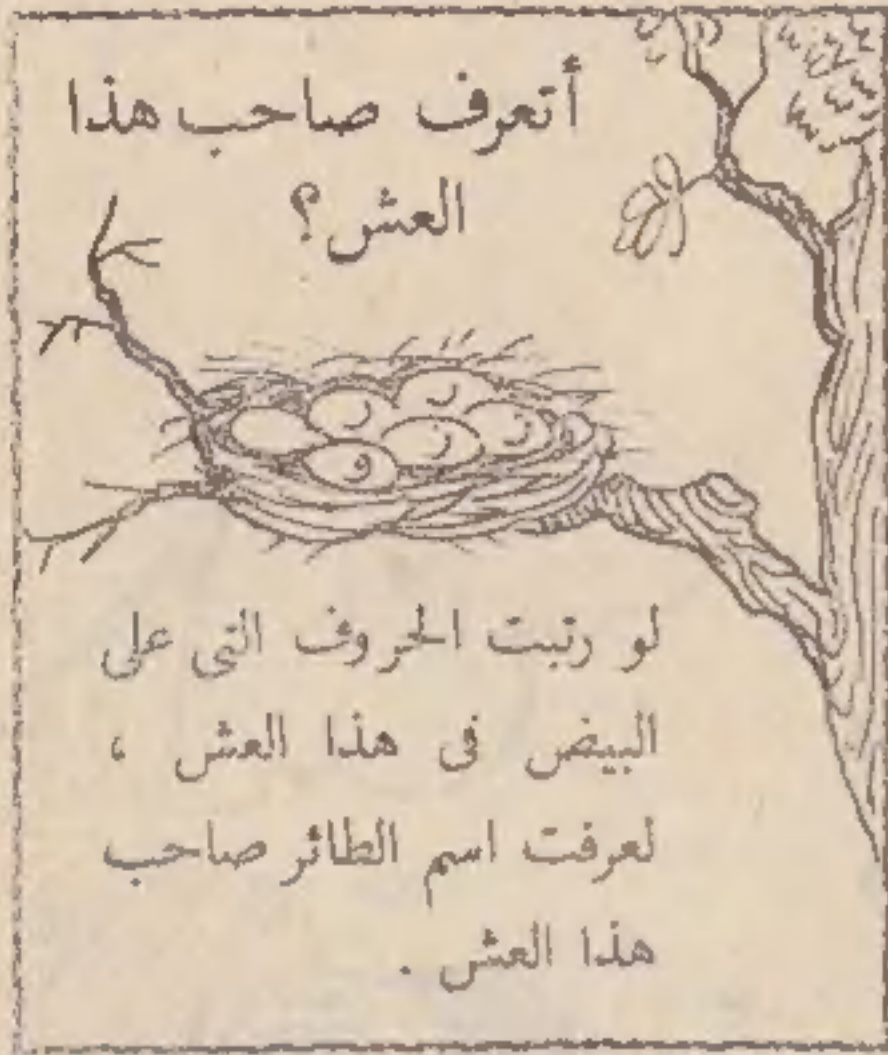 أتعرف صاحب هذا
العش؟
ر
ر
ز
ز
و
و
لو رتبت الحروف التى على
البيض فى هذا العش ،
لعرفت اسم الطائر صاحب
هذا العش .